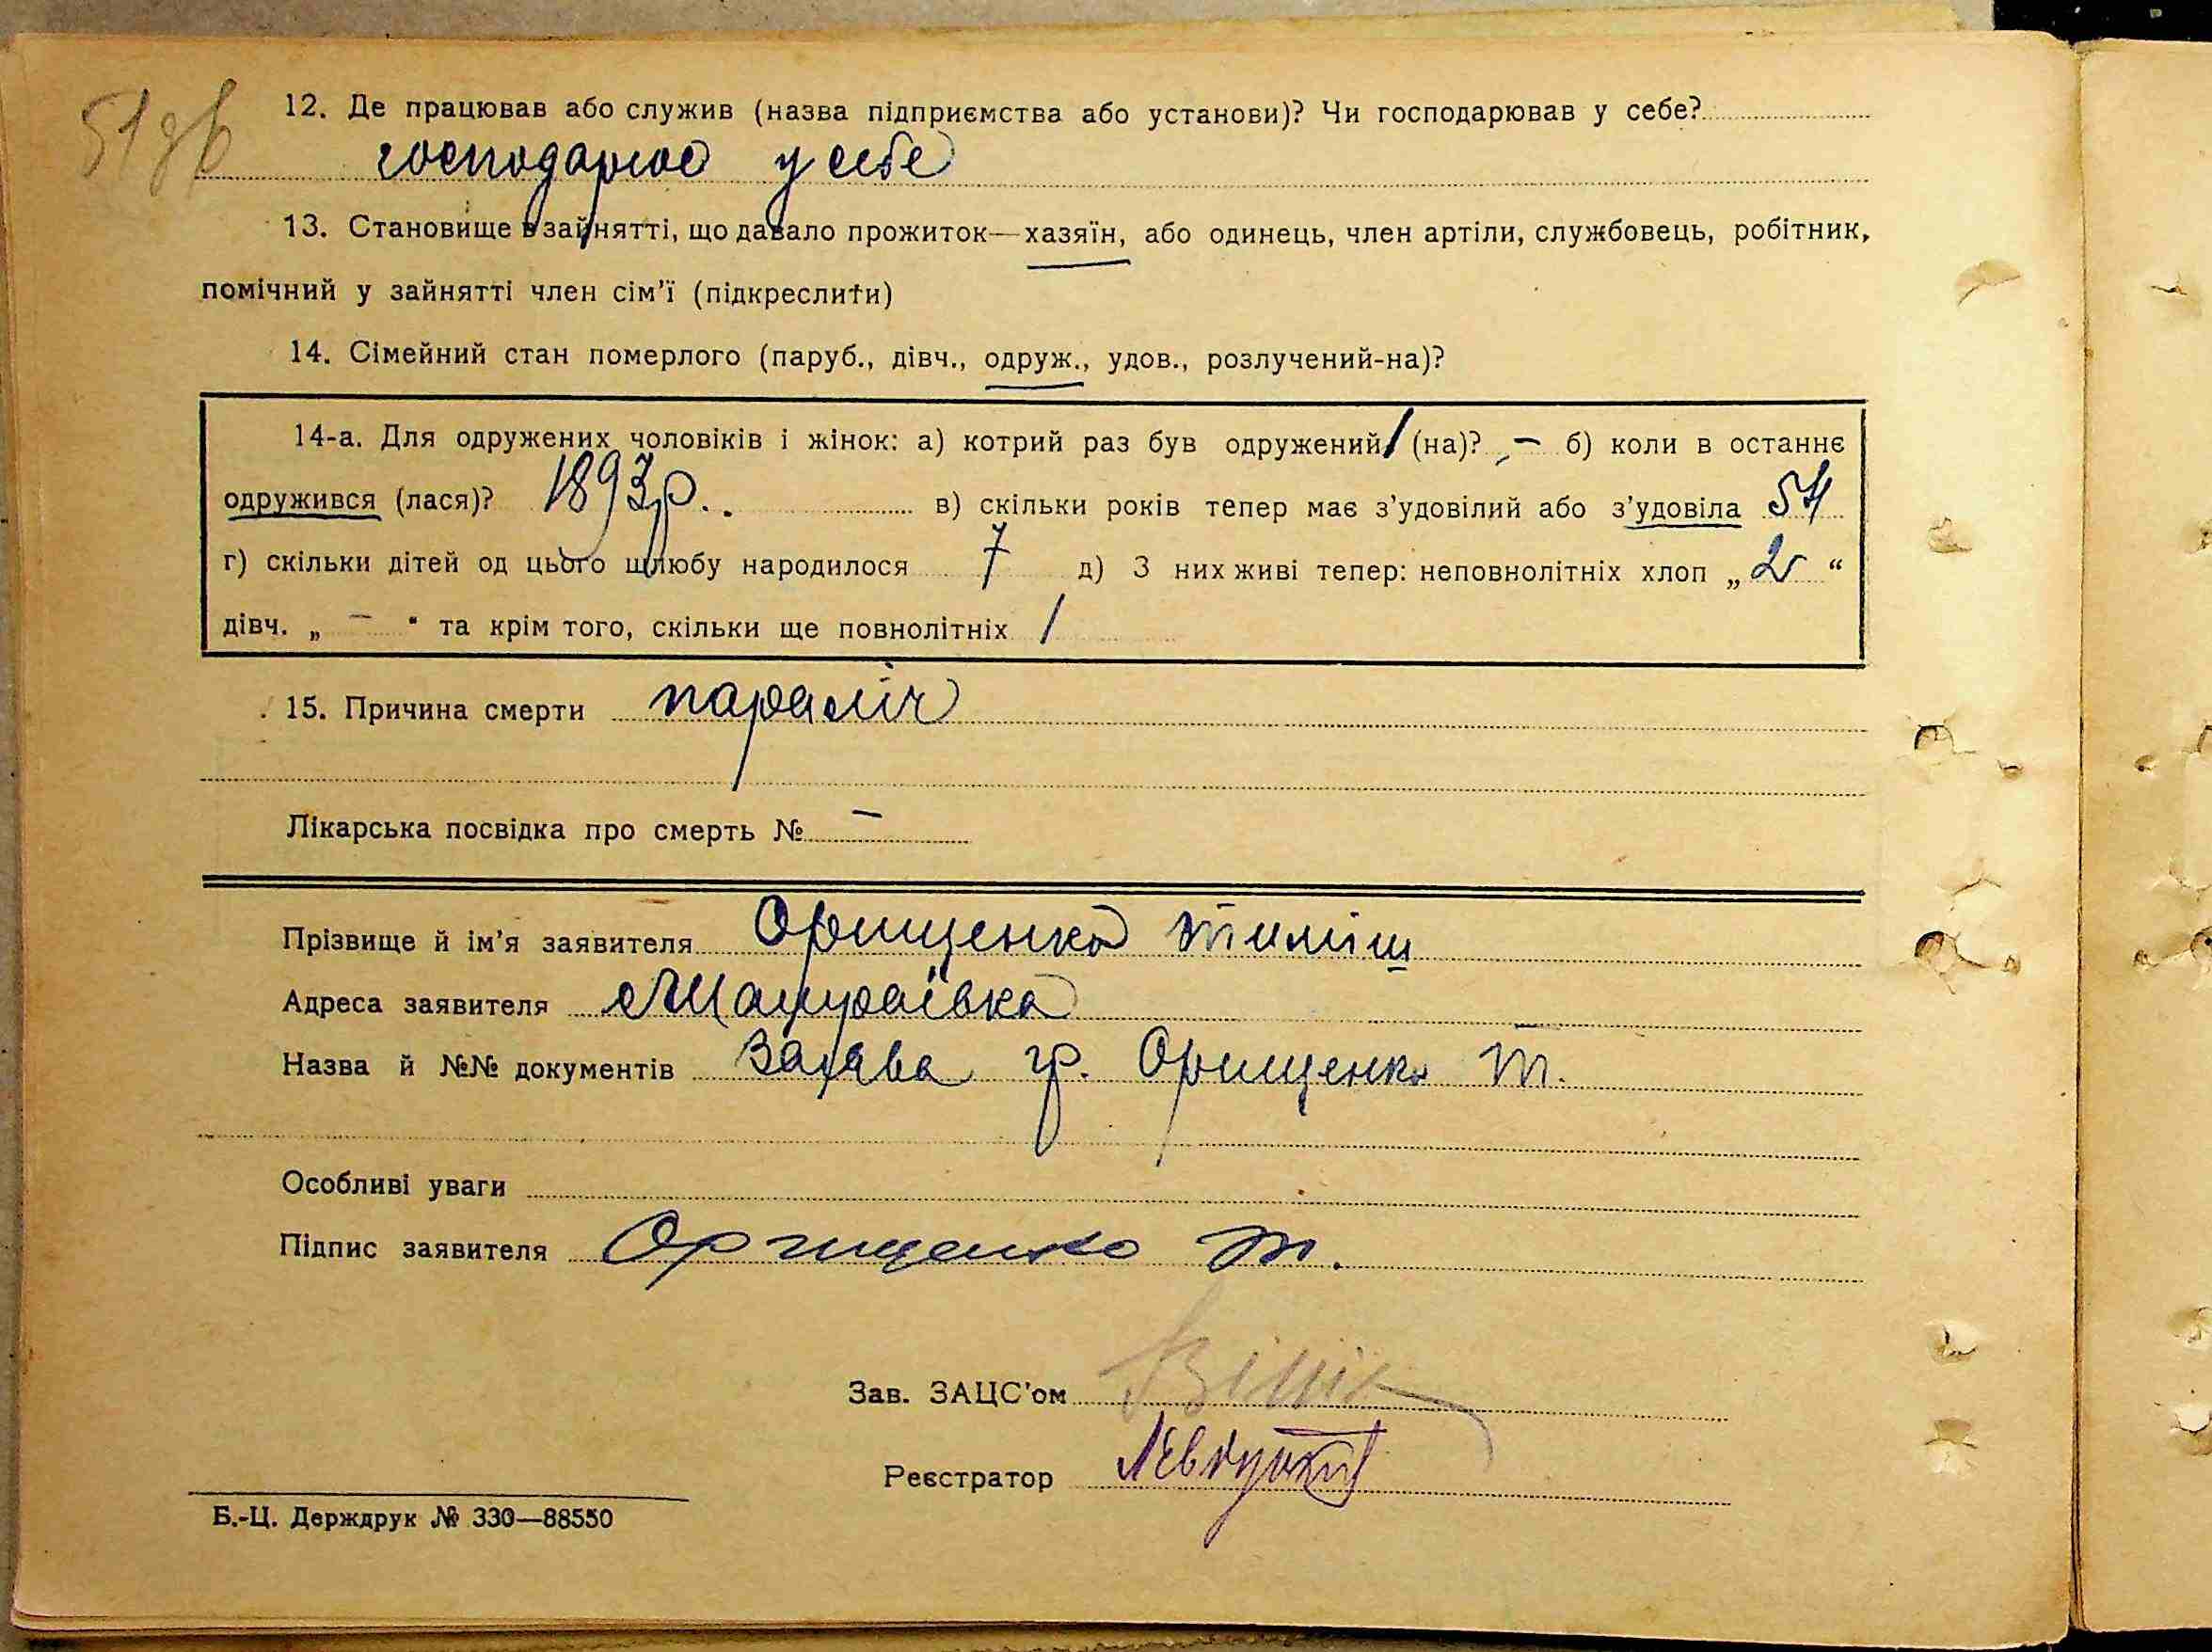 51зв
12. Де працював або служив (назва підприємства або установи)? Чи господарював у себе?
господарював у себе
13. Становище в зайнятті, що давало прожиток—хазяїн, або одинець, член артіли, службовець, робітник,
помічний у зайнятті член сім'ї (підкреслити)
14. Сімейний стан померлого (паруб., дівч., одруж., удов., розлучений-на)?
14-а. Для одружених чоловіків і жінок: а) котрий раз був одружений 1 (на)? — б) коли в останнє
одружився (лася)? 1893 р. в) скільки років тепер має з'удовілий або з'удовіла 54
г) скільки дітей од цього шлюбу народилося 7 д) З них живі тепер: неповнолітніх хлоп „ 2 “
дівч. „ — “ та крім того, скільки ще повнолітніх 1
15. Причина смерти параліч
Лікарська посвідка про смерть № —
Прізвище й ім'я заявителя Орищенко Тиміш
Адреса заявителя
Назва й №№ документів Заява гр. Орищенко Т.
Особливі уваги
Підпис заявителя Орищенко Т.
Зав. ЗАЦС'ом
Реєстратор
Б.-Ц. Держдрук № 330—88550